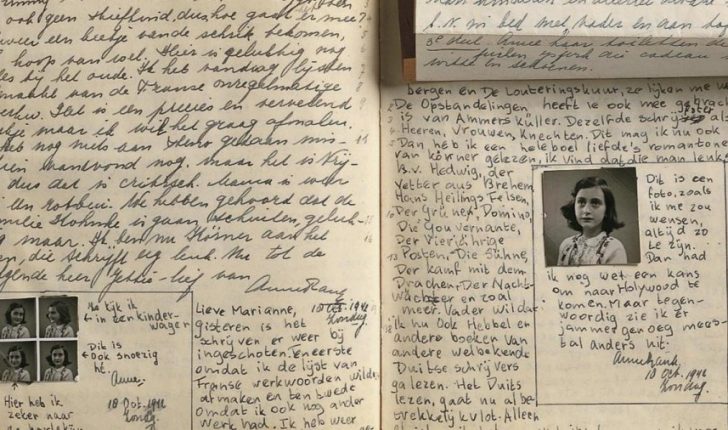 ook een stiefkind, dus hoe gaat er mee
weer een beetje van de schrik bekomen,
hoop van wel. Hier is gelukkig nog
alles bij het oude. Ik heb vandaag lijsten
gemaakt van de Franse onregelmatige
Het is een precies en vervelend
maar ik wil het graag afmaken.
heb nog niets aan Steno gedaan mis-
schien vanavond nog. maar het is
dus dat is critisch. Mama is weer
We hebben gehoord dat de
familie is gaan schuilen, geluk-
kig maar. Ik ben nu Körner aan het
die schrijft erg leuk. Nu tot de
volgende keer, liefs van
Anne Frank
18 Oct. 1942
Zondag.
Lieve Marianne,
gisteren is het
schrijven er weer bij
ingeschoten. Eneerste
omdat ik de lijst van
Franse werkwoorden wilde
afmaken en ten twede
omdat ik ook nog ander
werk had. Ik heb weer
Na kijk ik
in een kinder-
wagen
Dit is
ook snoezig
hé.
Anne.
Hier heb ik
zeker naar
18 Oct. 1942
Zondag.
in bed met vader en aan
3e deel. Anne haar
die cadeau
bergen en De Louteringskuur, ze lijken me
De Opstandelingen heeft ie ook mee gebracht
is van Ammers Küller. Dezelfde schrijfster als
Heeren, Vrouwen, Knechten. Dit mag ik nu ook
Dan heb ik een heleboel liefde's romantone
van körner gelezen, ik vind dat die man leuk
B.v. Hedwig, der
Vetter aus Bremen
Hans Heilings Felsen,
Der Grüne, Domino,
Die Gouvernante,
Der Vierjährige
Posten, Die Sühne,
Der Kampf mit dem
Drachen, Der Nacht-
wächter en zoal
meer. Vader wil dat
ik nu ook Hebbel en
andere boeken van
andere welbekende
Duitse schrijvers
ga lezen. Het Duits
lezen, gaat nu al be-
trekkelijk vlot. Alleen
Dit is een
foto, zoals
ik me zou
wensen,
altijd zo
te zijn.
Dan had
ik nog wel een kans
om naar Holywood te
komen. Maar tegen-
woordig zie ik er
jammer genoeg mees-
tal anders uit.
Anne Frank.
18 Oct. 1942
Zondag.